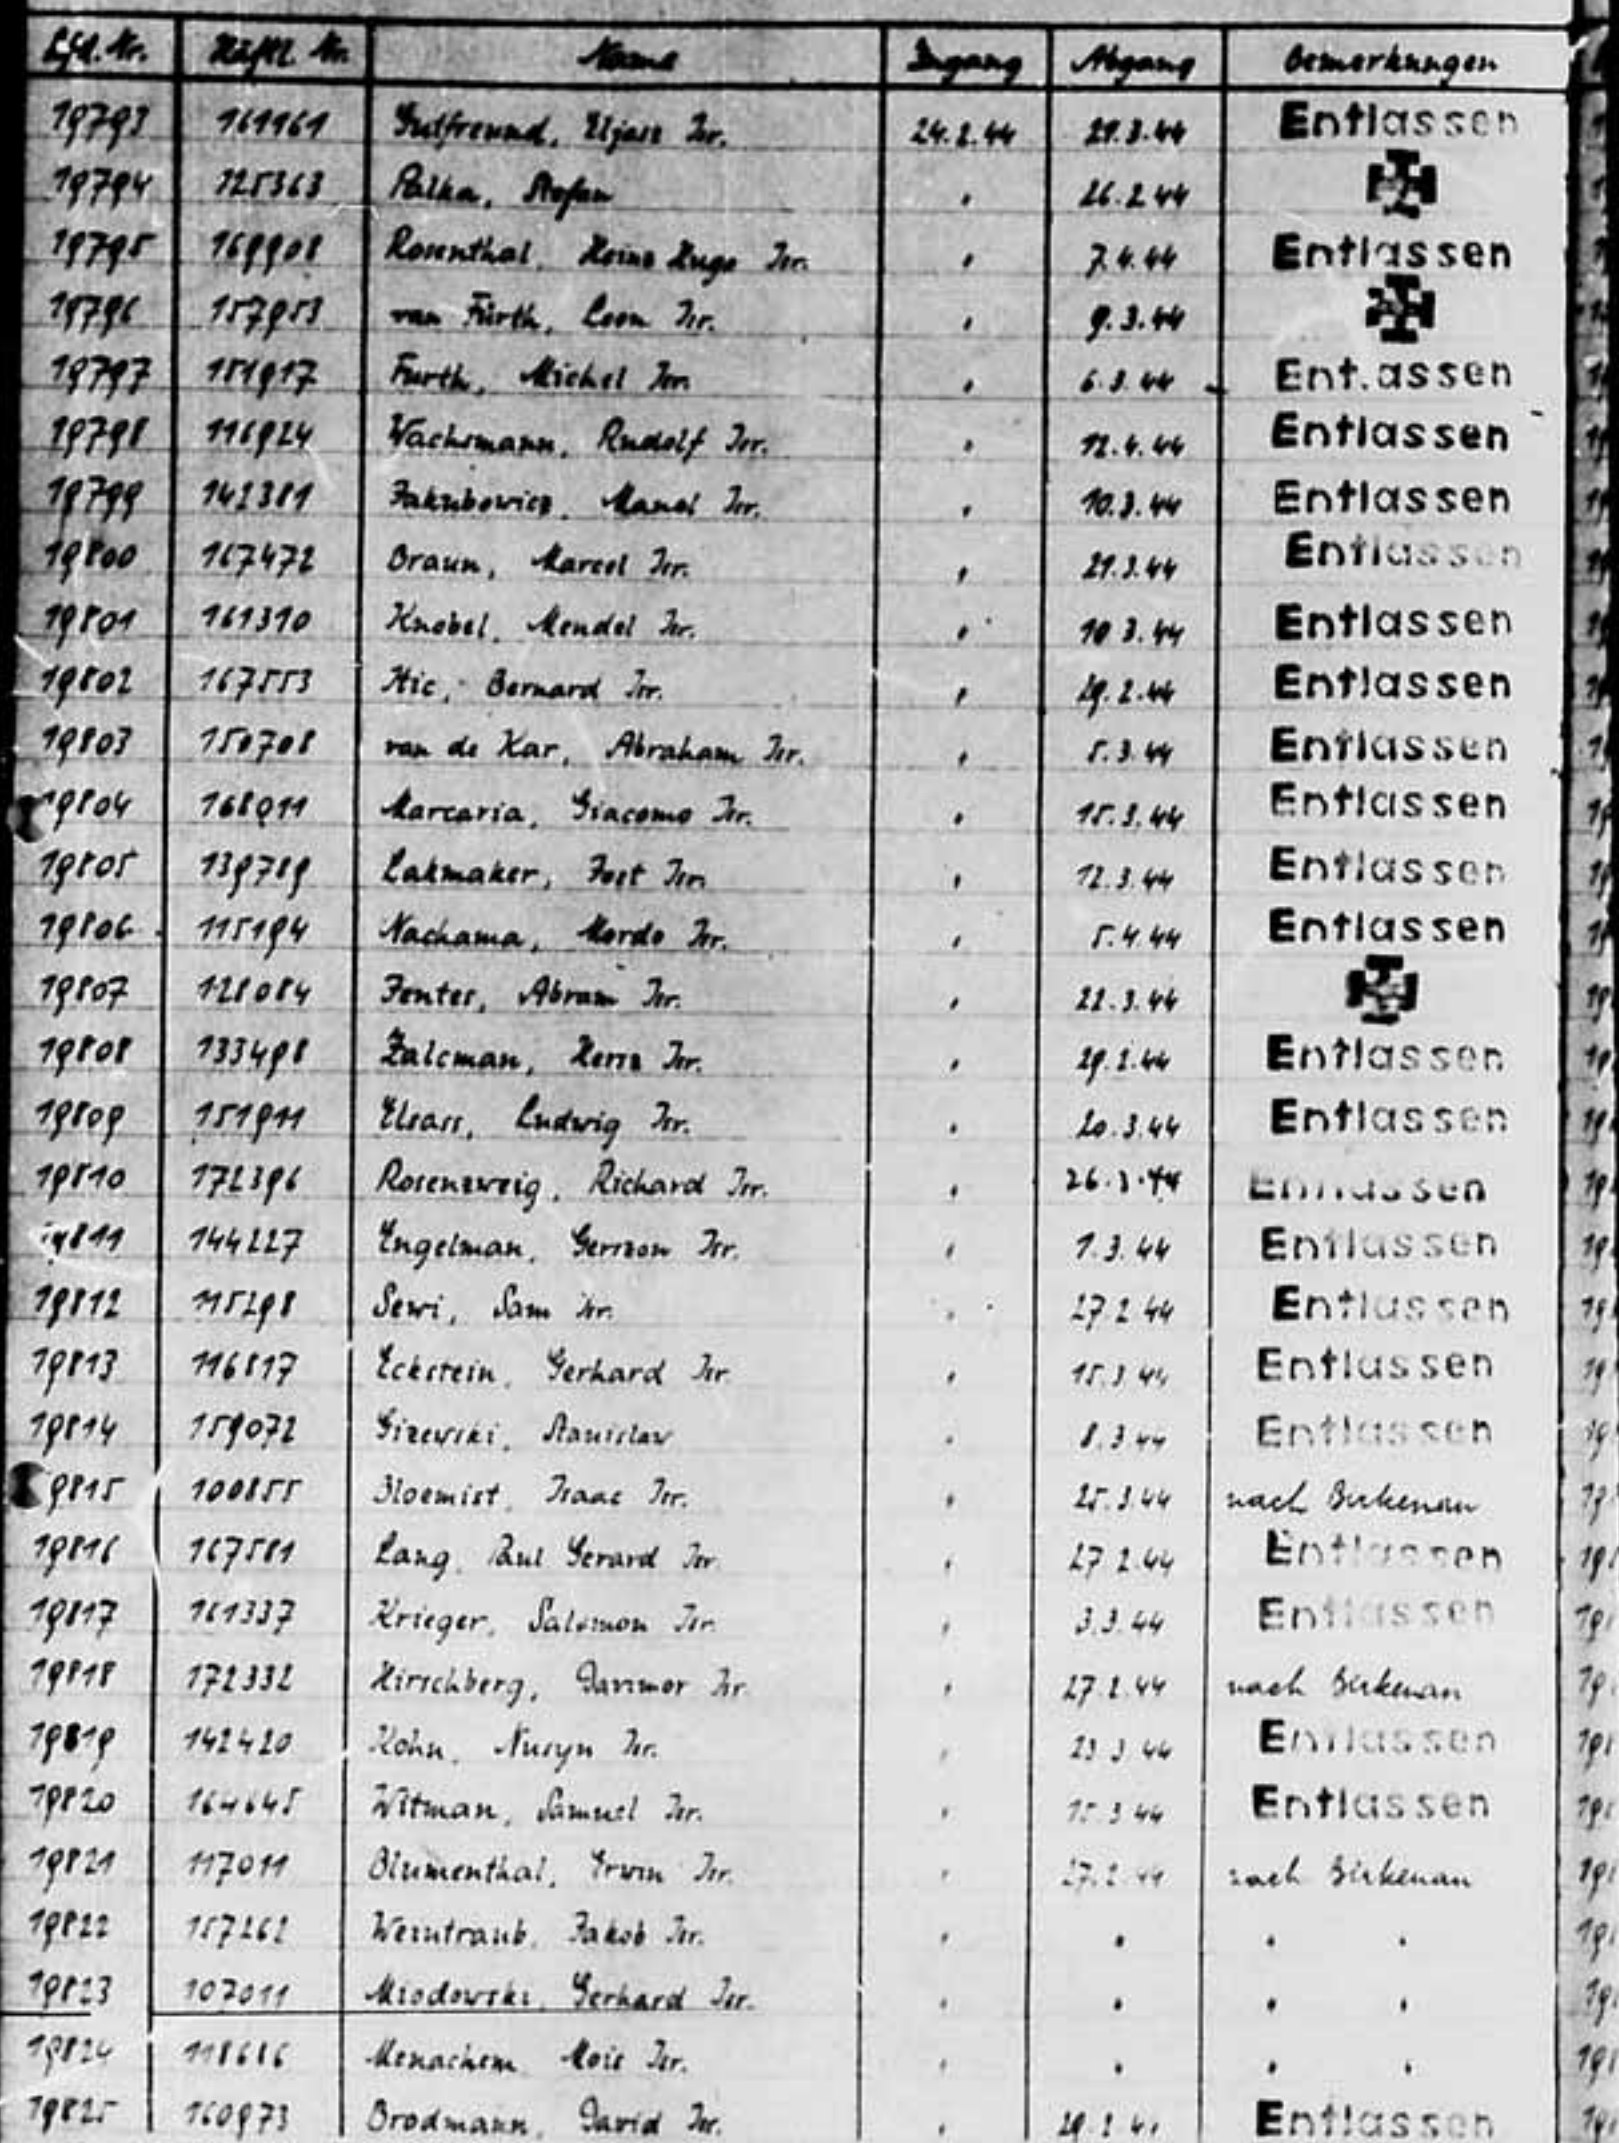 Lfd. Nr. Häftl. Nr. Name Zugang Abgang Bemerkungen
19793 161161 Gutfreund, Eljasz Isr. 24.2.44 21.3.44 Entlassen
19794 125363 Palka, Stefan " 26.2.44
19795 169908 Rosenthal, Heinz Hugo Isr. " 7.4.44 Entlassen
19796 157953 van Fürth, Leon Isr. " 9.3.44
19797 151917 Furth, Michel Isr. " 6.3.44 Entlassen
19798 116924 Wachsmann, Rudolf Isr. " 12.4.44 Entlassen
19799 142381 Jakubowicz, Manel Isr. " 10.3.44 Entlassen
19800 167472 Braun, Marcel Isr. " 21.3.44 Entlassen
19801 161310 Knobel, Mendel Isr. " 10.3.44 Entlassen
19802 167553 Hic, Bernard Isr. " 29.2.44 Entlassen
19803 150708 van de Kar, Abraham Isr. " 5.3.44 Entlassen
19804 168011 Marcaria, Giacomo Isr. " 15.3.44 Entlassen
19805 139789 Lakmaker, Jost Isr. " 12.3.44 Entlassen
19806 115194 Nachama, Mordo Isr. " 5.4.44 Entlassen
19807 128084 Fenter, Abram Isr. " 22.3.44
19808 133498 Zalcman, Hersz Isr. " 29.2.44 Entlassen
19809 151911 Elsass, Ludwig Isr. " 20.3.44 Entlassen
19810 172396 Rosenzweig, Richard Isr. " 26.3.44 Entlassen
19811 144227 Engelman, Gerszon Isr. " 1.3.44 Entlassen
19812 115298 Sewi, Sam Isr. " 27.2.44 Entlassen
19813 116817 Eckstein, Gerhard Isr. " 15.3.44 Entlassen
19814 159072 Gizewski, Stanislaw " 8.3.44 Entlassen
19815 100855 Bloemist, Isaac Isr. " 25.3.44 nach Birkenau
19816 167581 Lang, Paul Gerard Isr. " 27.2.44 Entlassen
19817 161337 Krieger, Salomon Isr. " 3.3.44 Entlassen
19818 172332 Hirschberg, Isr. " 27.2.44 nach Birkenau
19819 142420 Kohn, Nusyn Isr. " 23.3.44 Entlassen
19820 164645 Witman, Samuel Isr. " 15.3.44 Entlassen
19821 117011 Blumenthal, Erwin Isr. " 27.2.44 nach Birkenau
19822 157262 Weintraub, Jakob Isr. " " " "
19823 107011 Miodowski, Gerhard Isr. " " " "
19824 118686 Menachem, Mois Isr. " " " "
19825 160973 Brodmann, David Isr. " 29.2.44 Entlassen